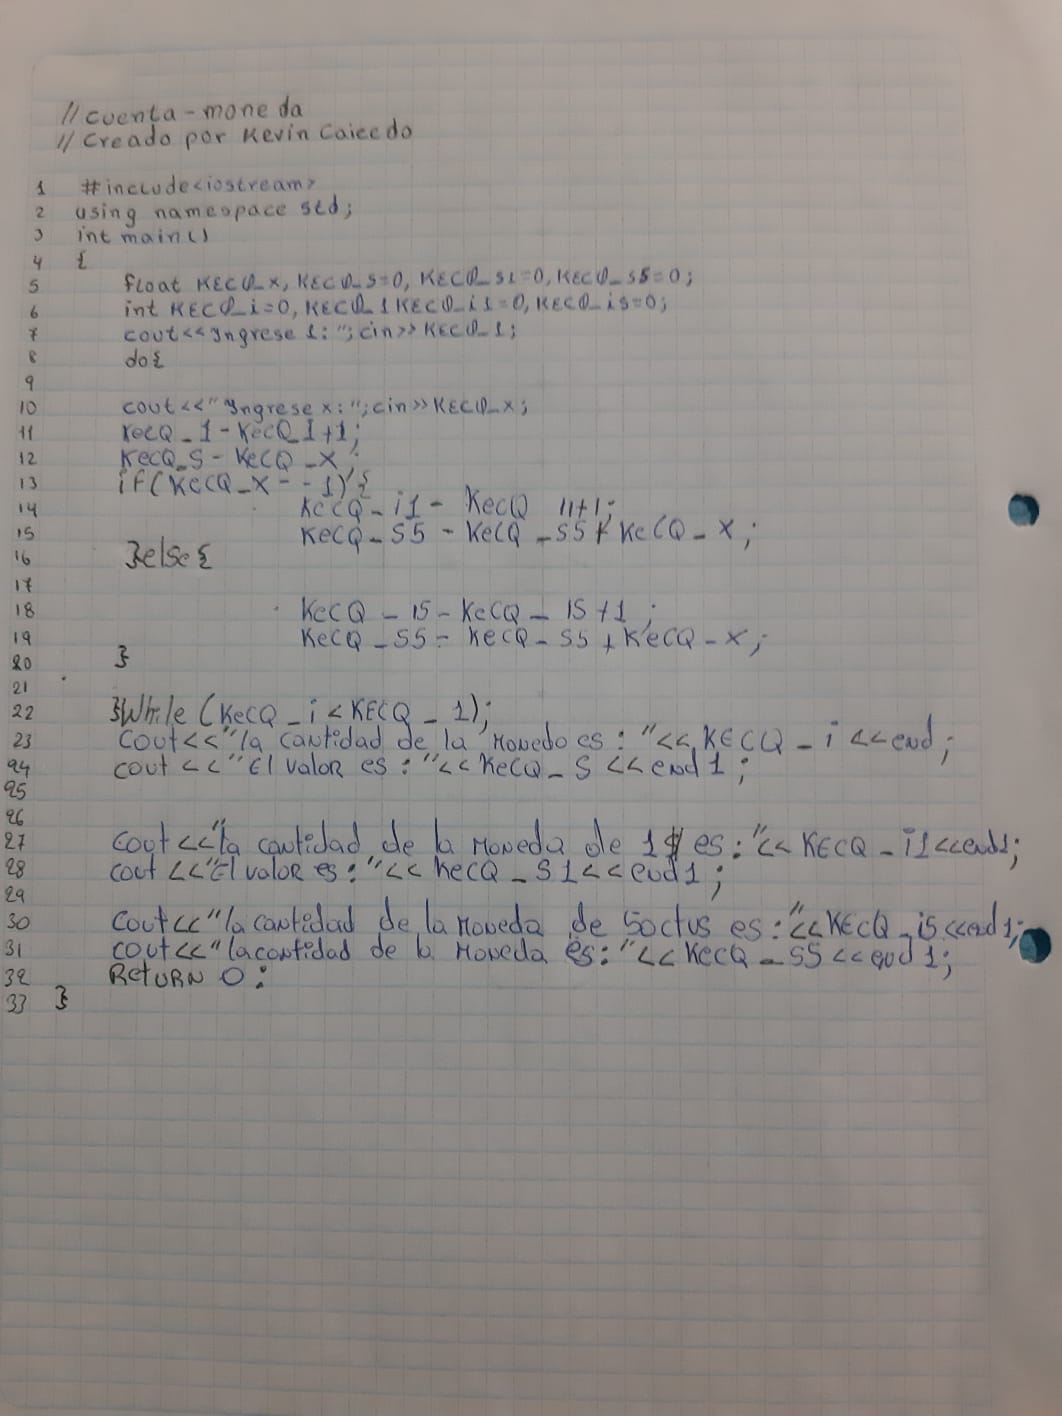 // cuenta-moneda
// Creado por Kevin Caicedo
1 #include<iostream>
2 using namespace std;
3 int main()
4 {
5 float KECQ_x, KECQ_s=0, KECQ_s1=0, KECQ_s5=0;
6 int KECQ_i=0, KECQ_1 KECQ_i1=0, KECQ_i5=0;
7 cout<<"Ingrese 1: ";cin>>KECQ_1;
8 do{
9
10 cout<<"Ingrese x: ";cin>>KECQ_x;
11 KecQ_1-KecQ_1+1;
12 KecQ_S-KeCQ_X;
13 if(KecQ_X--1){
14 KecQ_i1- KecQ 11+1;
15 KeCQ_S5 - KeCQ_S5+KeCQ_X;
16 }else{
17
18 KecQ_15-KeCQ_15+1;
19 KeCQ_S5= KeCQ_S5+KeCQ-X;
20 }
21
22 }While (KeCQ_i<KECQ_1);
23 Cout<<"la cantidad de la Monedo es: "<<KECQ_i<<end;
24 cout<<"El valor es: "<<KeCQ_S<<end1;
25
26
27 Cout<<"la cantidad de la Moneda de 1$ es: "<<KECQ_i1<<end1;
28 cout<<"El valor es: "<<KecQ_S1<<end1;
29
30 Cout<<"la cantidad de la Moneda de 5octus es: "<<KEcQ_i5<<end1;
31 cout<<"la contidad de la Moneda es: "<<KecQ_S5<<end1;
32 RETURN 0:
33 }